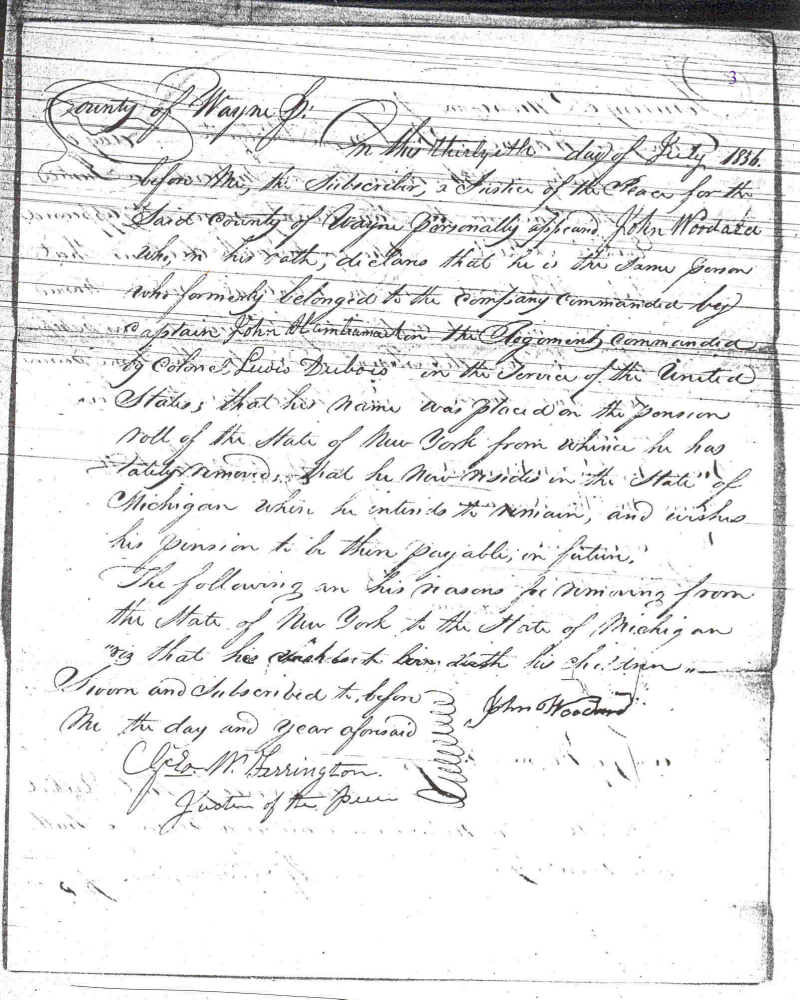 3
County of Wayne Ss:
On this thirtyeth day of July 1836.
before Me, the Subscriber, a Justice of the Peace for the
Said County of Wayne personally appeard John Woodard
who, on his oath, declares that he is the Same person
who formerly belonged to the company commanded by
Captain John in the Regiment commanded
by Colonel Lewis Dubois in the Service of the United
States; that his name was placed on the pension
roll of the State of New York from whence he has
lately removed; that he now resides in the State of
Michigan where he intends to remain, and wishes
his pension to be there payable, in future.
The following are his reasons for removing from
the State of New York to the State of Michigan
viz that he his children
Sworn and Subscribed to, before
Me the day and year aforesaid
John Woodard
Geo W. Ferrington.
Justice of the Peace